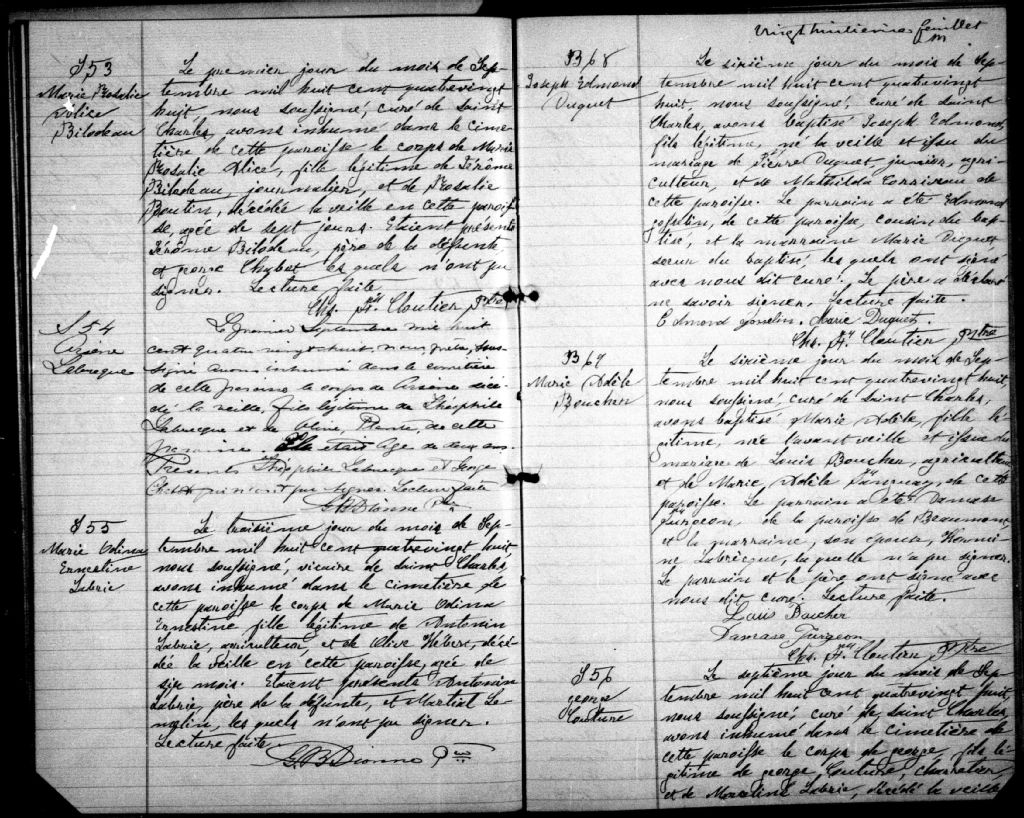 S 53
Marie Rosalie
Bilodeau
Le premier jour du mois de Sep-
tembre mil huit cent quatrevingt
huit, nous soussigné, curé de Saint
Charles, avons inhumé dans le cime-
tière de cette paroisse le corps de Marie
Rosalie Alice, fille légitime de Jérôme
Bilodeau, journalier, et de Rosalie
Boutin, décédée la veille en cette parois
se, agée de sept jours. Etaient présents
Jérôme Bilodeau, père de la défunte
et george Chabot les quels n'ont pu
signer. Lecture faite
Chs. Cloutier Ptre
S 54
Labrecque
Le premier Septembre mil huit
cent quatre vingt huit, nous prêtre, sous-
signé avons inhumé dans le cimetière
de cette paroisse le corps de décé-
dé la veille, fils légitime de Théophile
Labrecque et de cette
paroisse. etait âgé de deux ans
Présents Théophile Labrecque et George
Chabot qui n'ont pu signer. Lecture faite
G B Dionne Ptre
S 55
Marie Odina
Ernestine
Labrie
Le troisième jour du mois de Sep-
tembre mil huit cent quatrevingt huit,
nous soussigné, vicaire de Saint Charles,
avons inhumé dans le cimetière de
cette paroisse le corps de Marie Odina
Ernestine fille légitime de Antonin
Labrie, agriculteur, et de Olive Hébert, décé-
dée la veille en cette paroisse, agée de
six mois. Etaient présents Antonin
Labrie, père de la défunte, et Martial Le-
melin, les quels n'ont pu signer.
Lecture faite.
G B Dionne Ptre
Vingt huitieme feuillet
B 68
Joseph Edmond
Duquet
Le sixième jour du mois de Sep-
tembre mil huit cent quatrevingt
huit, nous soussigné, curé de Saint
Charles, avons baptisé Joseph Edmond,
fils légitime, né la veille et issu du
mariage de Pierre Duquet, junior, agri-
culteur, et de Mathilda Corriveau de
cette paroisse. Le parrain a été Edmond
gosselin, de cette paroisse, cousin du bap-
tisé, et la marraine Marie Duquet
soeur du baptisé les quels ont signé
avec nous dit curé. Le père a déclaré
ne savoir signer. Lecture faite.
Edmond Gosselin. Marie Duquet.
Chs. Cloutier Ptre
B 69
Marie Adèle
Boucher
Le sixième jour du mois de Sep-
tembre mil huit cent quatrevingt huit,
nous soussigné, curé de Saint Charles,
avons baptisé Marie Adèle, fille lé-
gitime, née l'avant veille et issue du
mariage de Louis Boucher, agriculteur
et de Marie Adèle Tanguay, de cette
paroisse. Le parrain a été Damase
Turgeon de la paroisse de Beaumont
et la marraine, son épouse,
Labrecque, la quelle n'a pu signer.
Le parrain et le père ont signé avec
nous dit curé. Lecture faite.
Louis Boucher
Damase Turgeon
Chs. Cloutier Ptre
S 56
george
Couture
Le septième jour du mois de Sep-
tembre mil huit cent quatrevingt huit
nous soussigné, curé de Saint Charles,
avons inhumé dans le cimetière de
cette paroisse le corps de george, fils lé-
gitime de george Couture, charretier,
et de Marceline Labrie, décédé la veille